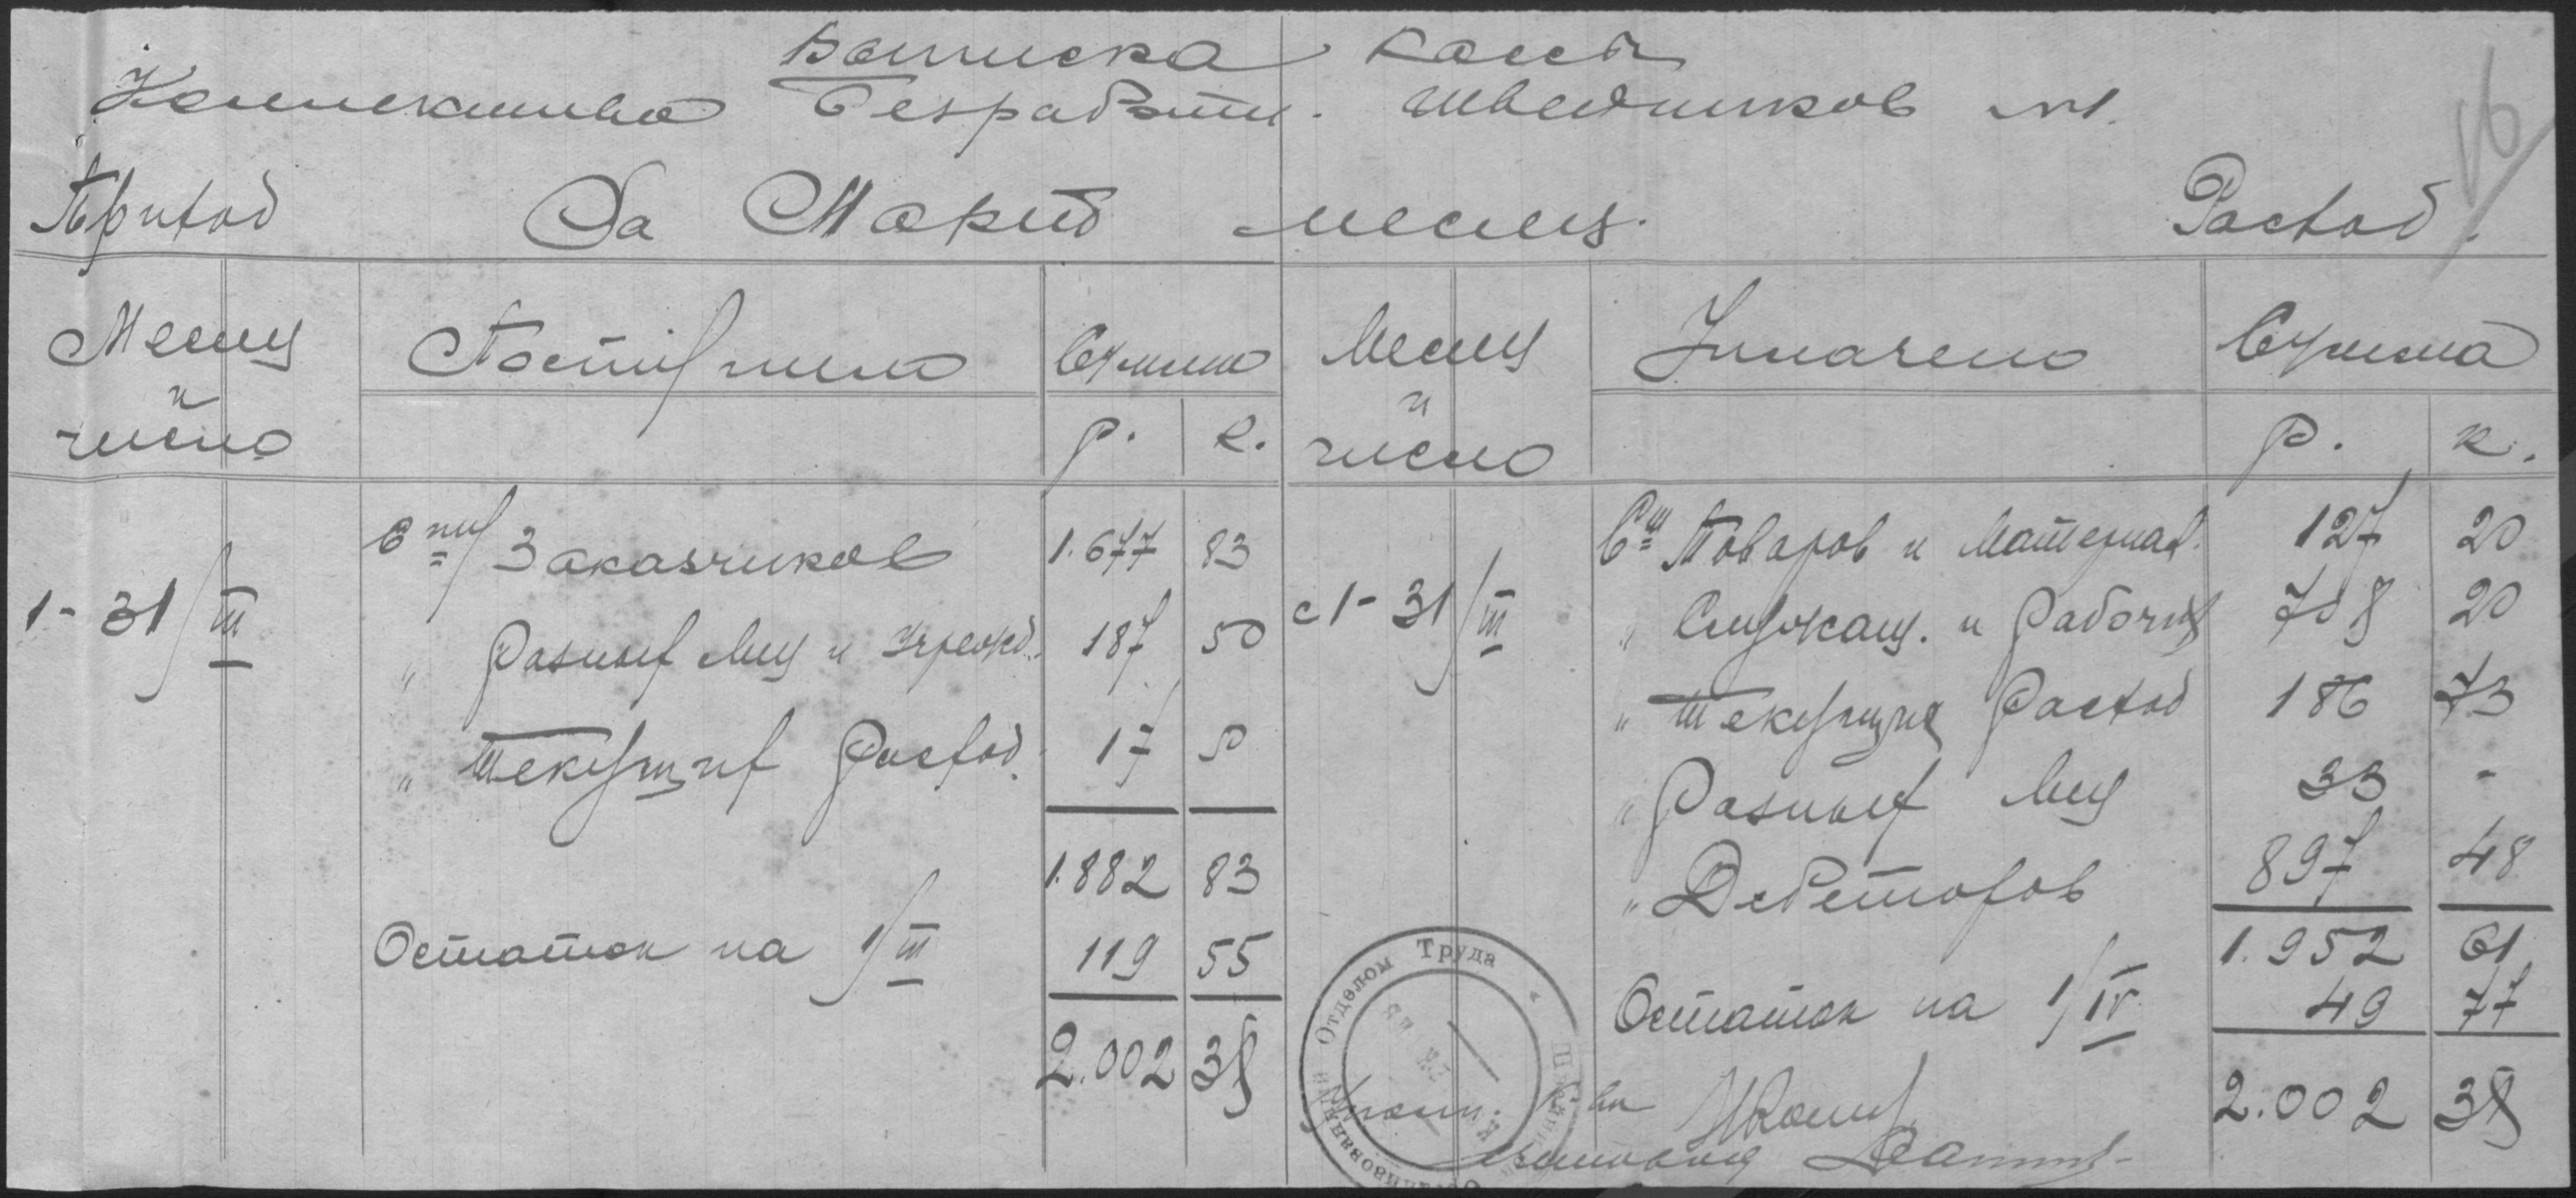 Выписка Кассы
Коллектива Безработн. швейников №1.
16
Приход За Март месяц. Расход.
Месяц и число Поступило Сумма р. к.
1-31/III
От Заказчиков 1.677 83
" Разных лиц и Учрежд. 187 50
" Текущих Расход. 17 50
1.882 83
Остаток на 1/III 119 55
2.002 38
Месяц и число Уплачено Сумма р. к.
с 1-31/III
Сч Товаров и Материал. 127 20
" Служащ. и Рабочих 708 20
" Текущие Расход 186 73
" Разных лиц 33 -
" Дебеторов 897 48
1.952 61
Остаток на 1/IV 49 77
2.002 38
Отделом Труда